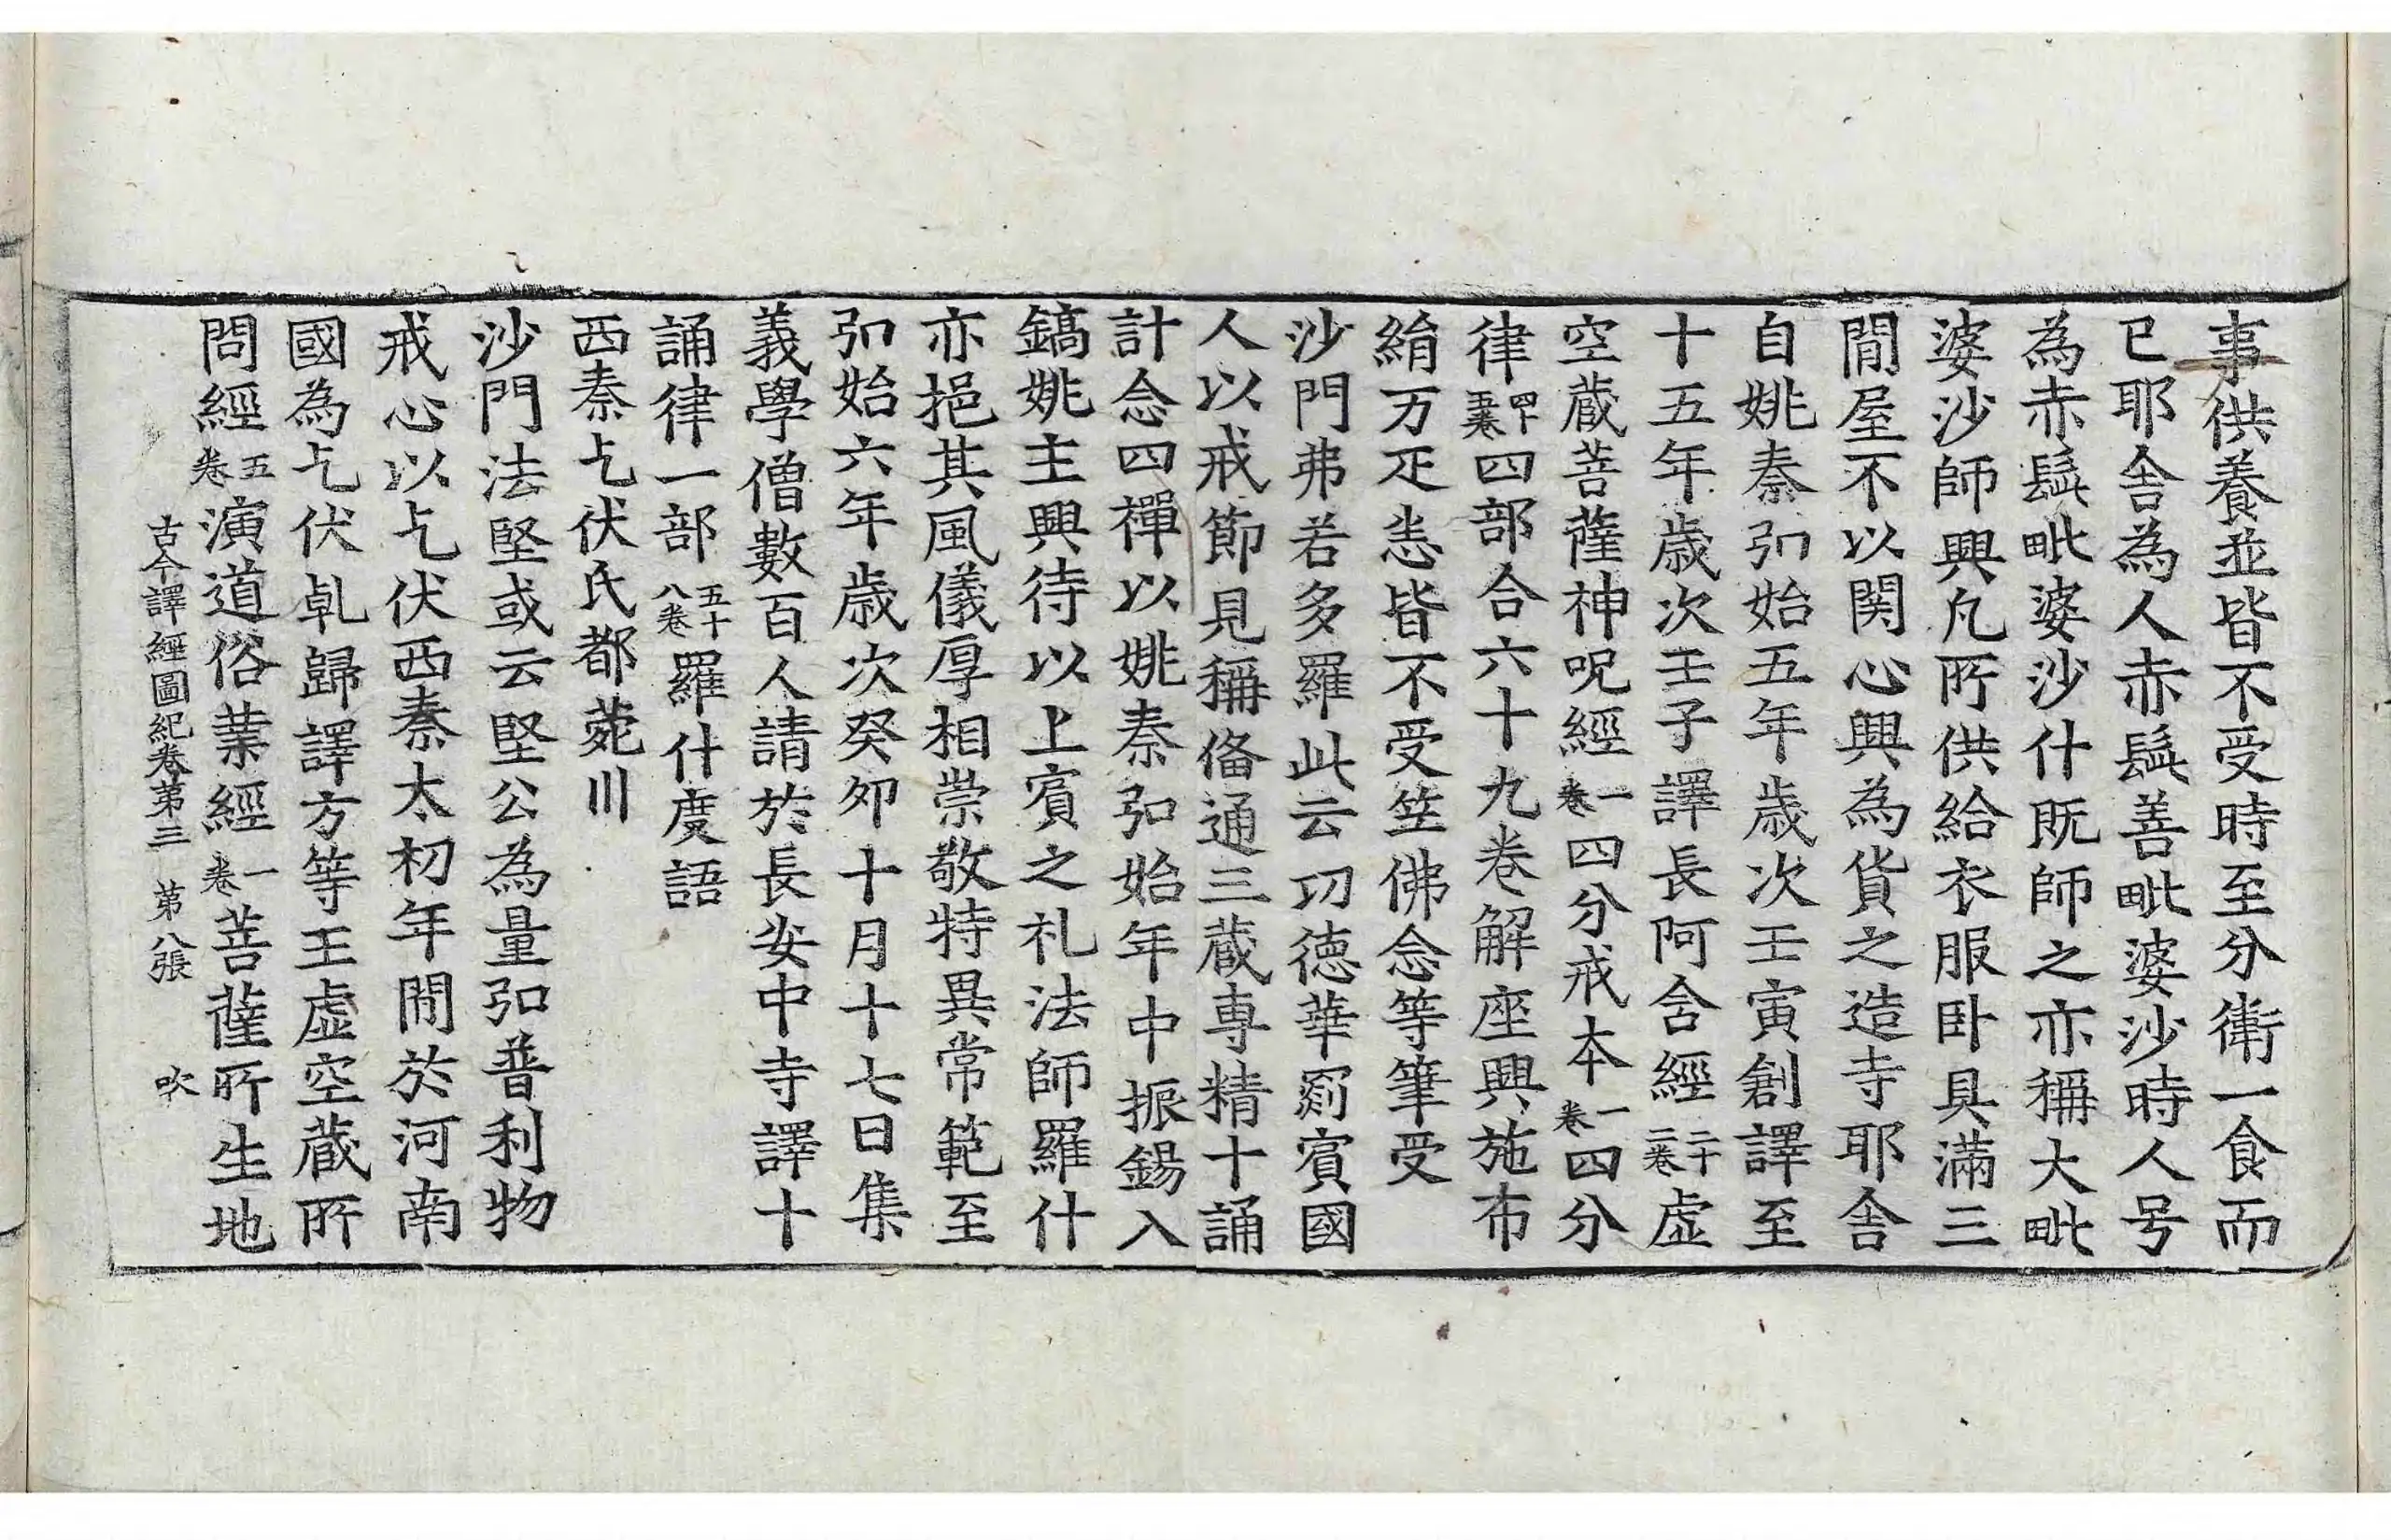 事供養並皆不受時至分衛一食而
已耶舍為人赤髭善毗婆沙時人号
為赤髭毗婆沙什既師之亦稱大毗
婆沙師興凢所供給衣服卧具滿三
閒屋不以関心興為貨之造寺耶舍
自姚秦弘始五年歳次壬寅創譯至
十五年歳次壬子譯長阿含經二十二卷虛
空蔵菩薩神呪經一卷四分戒本一卷四分
律四十五卷四部合六十九卷解座興施布
絹万疋耶舍皆不受笁佛念等筆受
沙門弗若多羅此云功德華罽賓國
人以戒節見稱俻通三蔵専精十誦
計念四禪以姚秦弘始年中振錫入
鎬姚主興待以上賓之礼法師羅什
亦挹其風儀厚相崇敬特異常範至
弘始六年歳次癸夘十月十七日集
義學僧數百人請於長安中寺譯十
誦律一部五十八卷羅什度語
西秦乞伏氏都菀川
沙門法堅或云堅公為量弘普利物
戒心以乞伏西秦太初年閒於河南
國為乞伏乹歸譯方等王虛空蔵所
問經五卷演道俗業經一卷菩薩所生地
古今譯經圖紀卷第三 第八張 吹